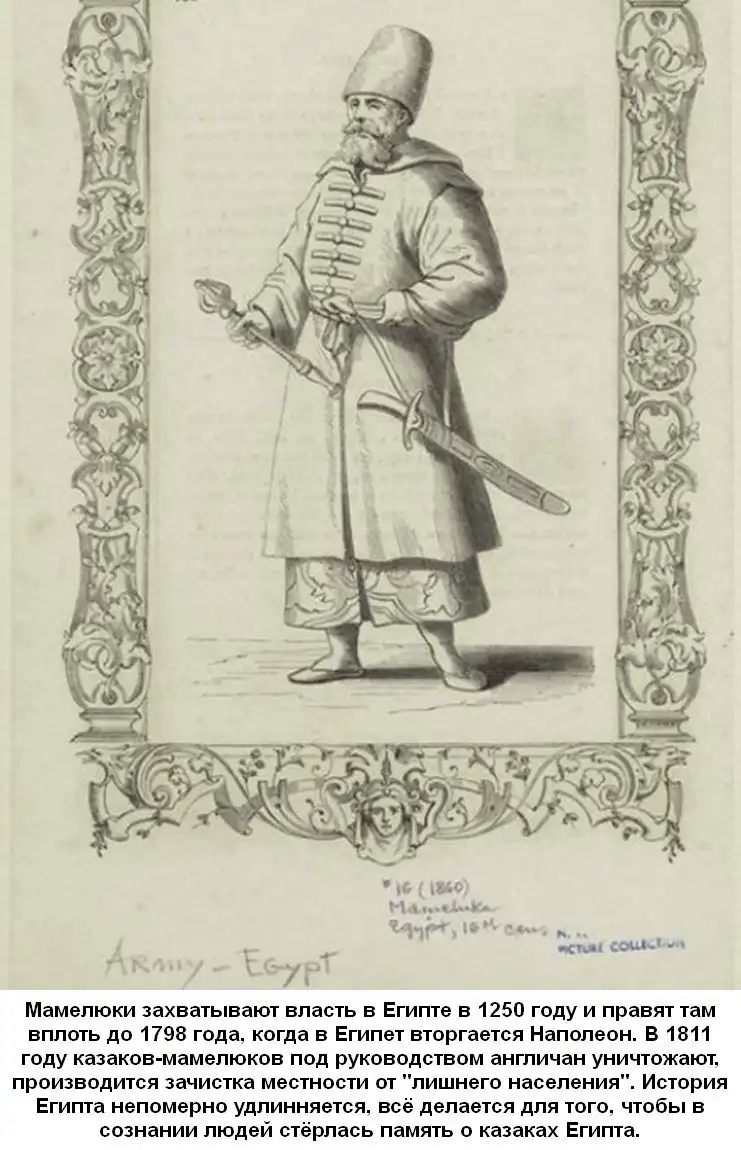 # 16 (1860)
Mameluke
Egypt, 16th cent
PICTURE COLLECTION
ARMY - EGYPT
Мамелюки захватывают власть в Египте в 1250 году и правят там
вплоть до 1798 года, когда в Египет вторгается Наполеон. В 1811
году казаков-мамелюков под руководством англичан уничтожают,
производится зачистка местности от "лишнего населения". История
Египта непомерно удлинняется, всё делается для того, чтобы в
сознании людей стёрлась память о казаках Египта.